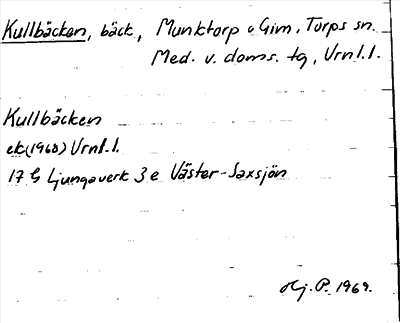 Kullbäcken, bäck, Munktorp o Gim, Torps sn.
Med. v. doms. tg, Vrnl.l.
Kullbäcken
ek(1968) Vrnl.l.
17 G Ljungaverk 3 e Väster-Saxsjön
Hj. P. 1969.